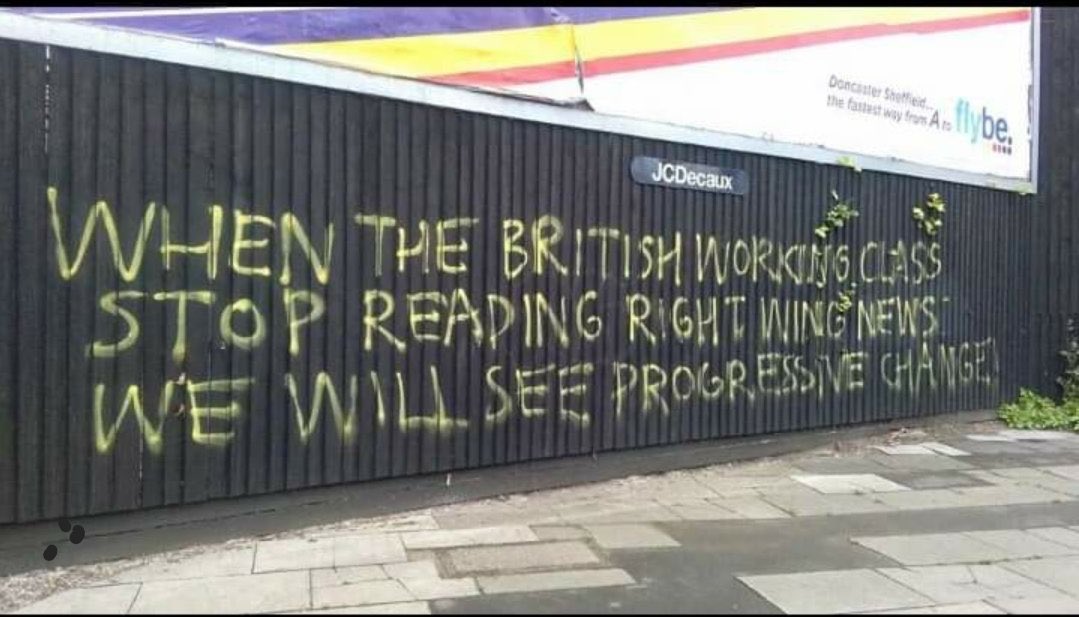 Doncaster Sheffield...
the fastest way from A to flybe.
JCDecaux
WHEN THE BRITISH WORKING CLASS
STOP READING RIGHT WING NEWS
WE WILL SEE PROGRESSIVE CHANGE!